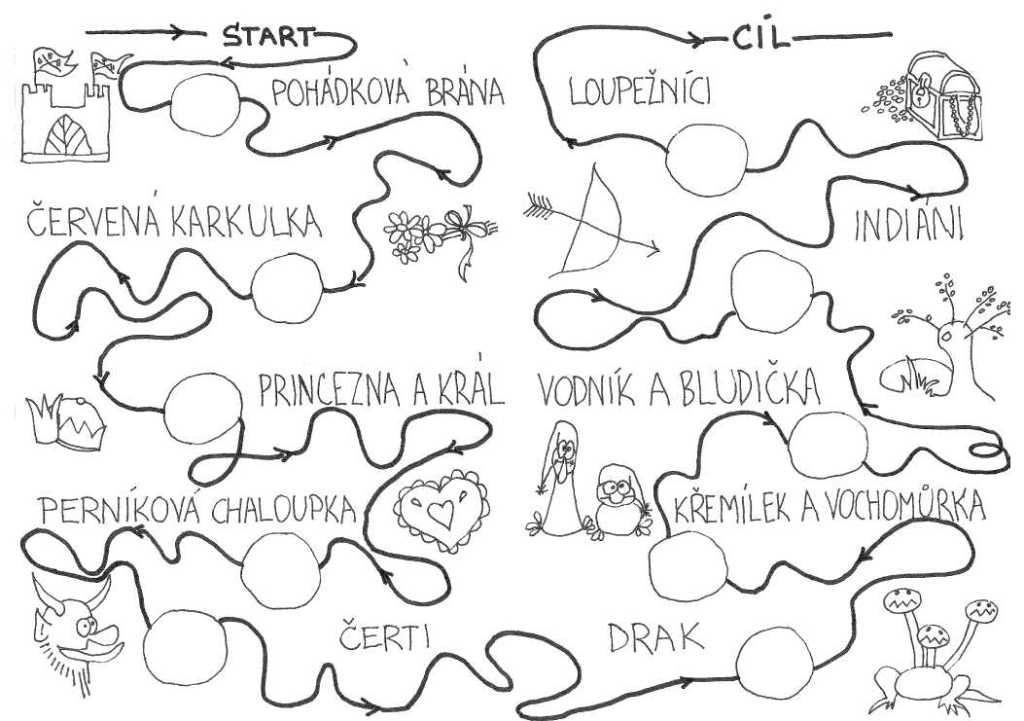 START
POHÁDKOVÁ BRÁNA
ČERVENÁ KARKULKA
PRINCEZNA A KRÁL
PERNÍKOVÁ CHALOUPKA
ČERTI
DRAK
KŘEMÍLEK A VOCHOMŮRKA
VODNÍK A BLUDIČKA
INDIÁNI
LOUPEŽNÍCI
CÍL